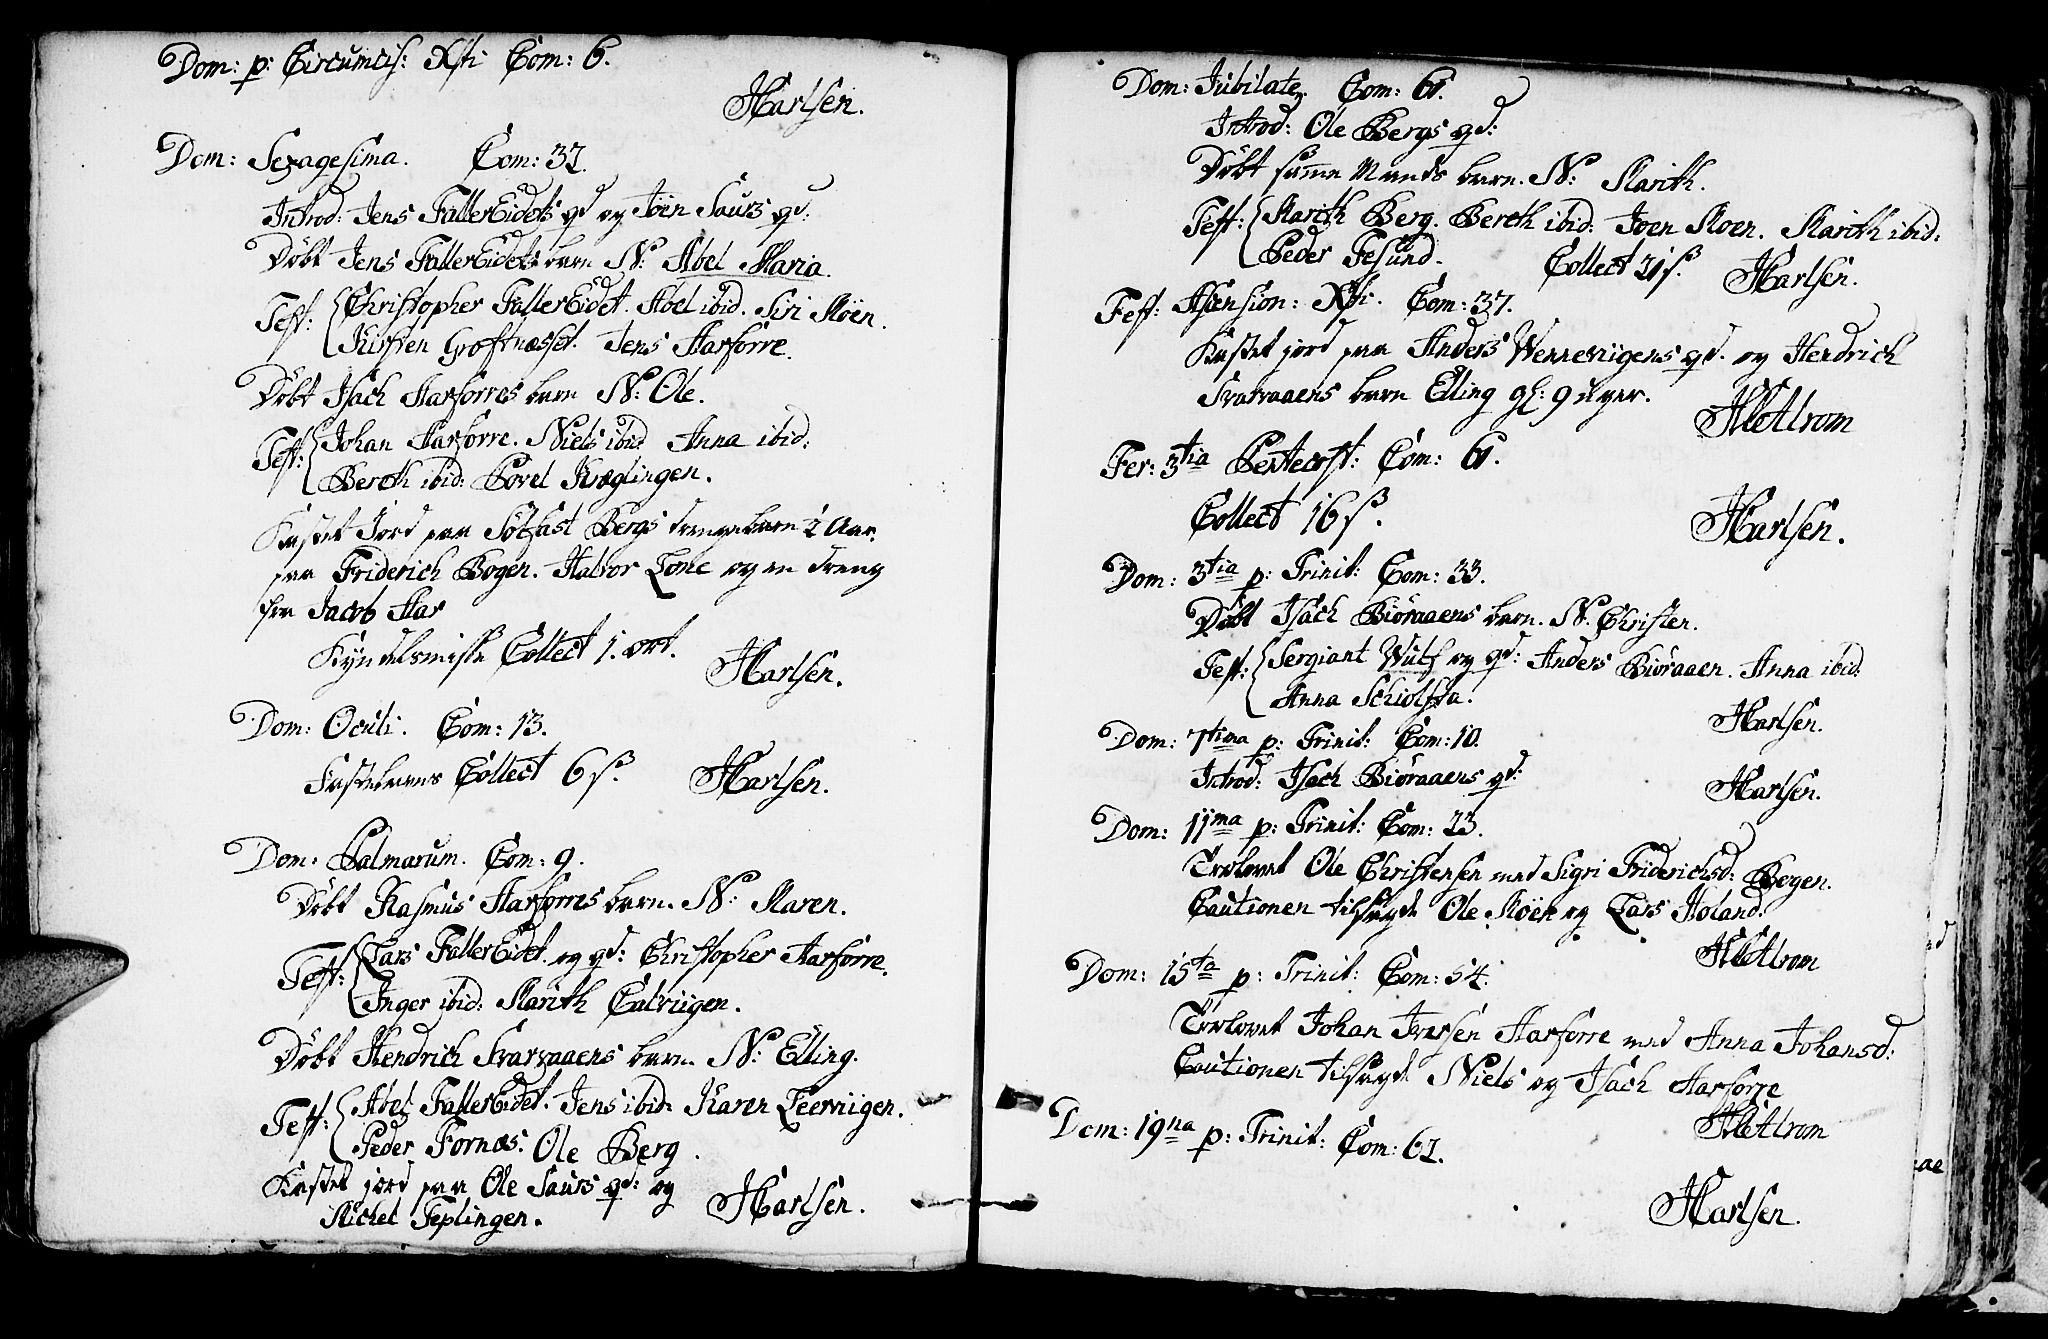 Dom: p: Circumcis: Xsti Com: 6.
HCarlsen.
Dom: Sexagesima. Com: 32.
Introd: Jens FallerEidets qd og Joen Saurs qd:
Döbt Jens FallerEidets barn N: Abel Maria.
Test: Christopher FallerEidet. Abel ibid. Siri Moen.
Kirsten Groftnæsset. Jens Aarforre.
Döbt Isach Aarforres barn N: Ole.
Test: Johan Aarforre. Niels ibid Anna ibid:
Bereth ibid: Povel Kræglingen.
Kastet Jord paa Solfast Bergs drengebarn 2 Aar.
paa Friderich Bogen. Halvor Lone og en dreng
fra Jacob Aar
Kyndelsmisse Collect 1. ort.
HCarlsen.
Dom: Oculi. Com: 13.
Fastelavens Collect 6 s.
HCarlsen.
Dom: Palmarum. Com: 9.
Döbt Rasmus Aarforres barn. N: Maren.
Test: Lars FallerEidet og qd: Christopher Aarforre.
Inger ibid: Marith Calviigen.
Döbt Hendrich Svarvaaens barn N: Elling.
Test: Abel FallerEidet. Jens ibid: Karen Leerviigen.
Peder Fornæs. Ole Berg.
Kastet jord paa Ole Saurs qd: og
Michel Teplingen.
HCarlsen.
Dom: Jubilate. Com: 6.
Introd: Ole Bergs qd:
Döbt samme Mands barn. N: Marith.
Test: Marith Berg. Bereth ibid: Joen Moen. Marith ibid:
Peder Fesund. Collect 21 s. HCarlsen.
Fest: Ascension: Xsti. Com: 37.
Kastet jord paa Anders Wennewiigens qd. og Hendrich
Svarvaaens barn Elling gl: 9 uger.
Fer: 3tia Pentecost: Com: 6.
Collect 16 s.
HCarlsen.
Dom: 3tia p: Trinit: Com: 33.
Döbt Isach Biöraaens barn. N. Christen.
Test: Sergiant Wulf og qd: Anders Biöraaen. Anna ibid:
Anna Schiolsta.
HCarlsen.
Dom: 7tima p: Trinit: Com: 10.
Introd: Isach Biöraaens qd:
HCarlsen.
Dom: 11ma p: Trinit: Com: 23.
Trolovet Ole Christensen med Sigri Friderichsd: Bogen.
Cautionen tilsagde Ole Moen og Lars Holand.
Dom: 15ta p: Trinit: Com: 54.
Trolovet Johan Iversen Aarforre med Anna Johansd:
Cautionen tilsagde Niels og Isach Aarforre
Dom: 19na p: Trinit: Com: 62.
HCarlsen.